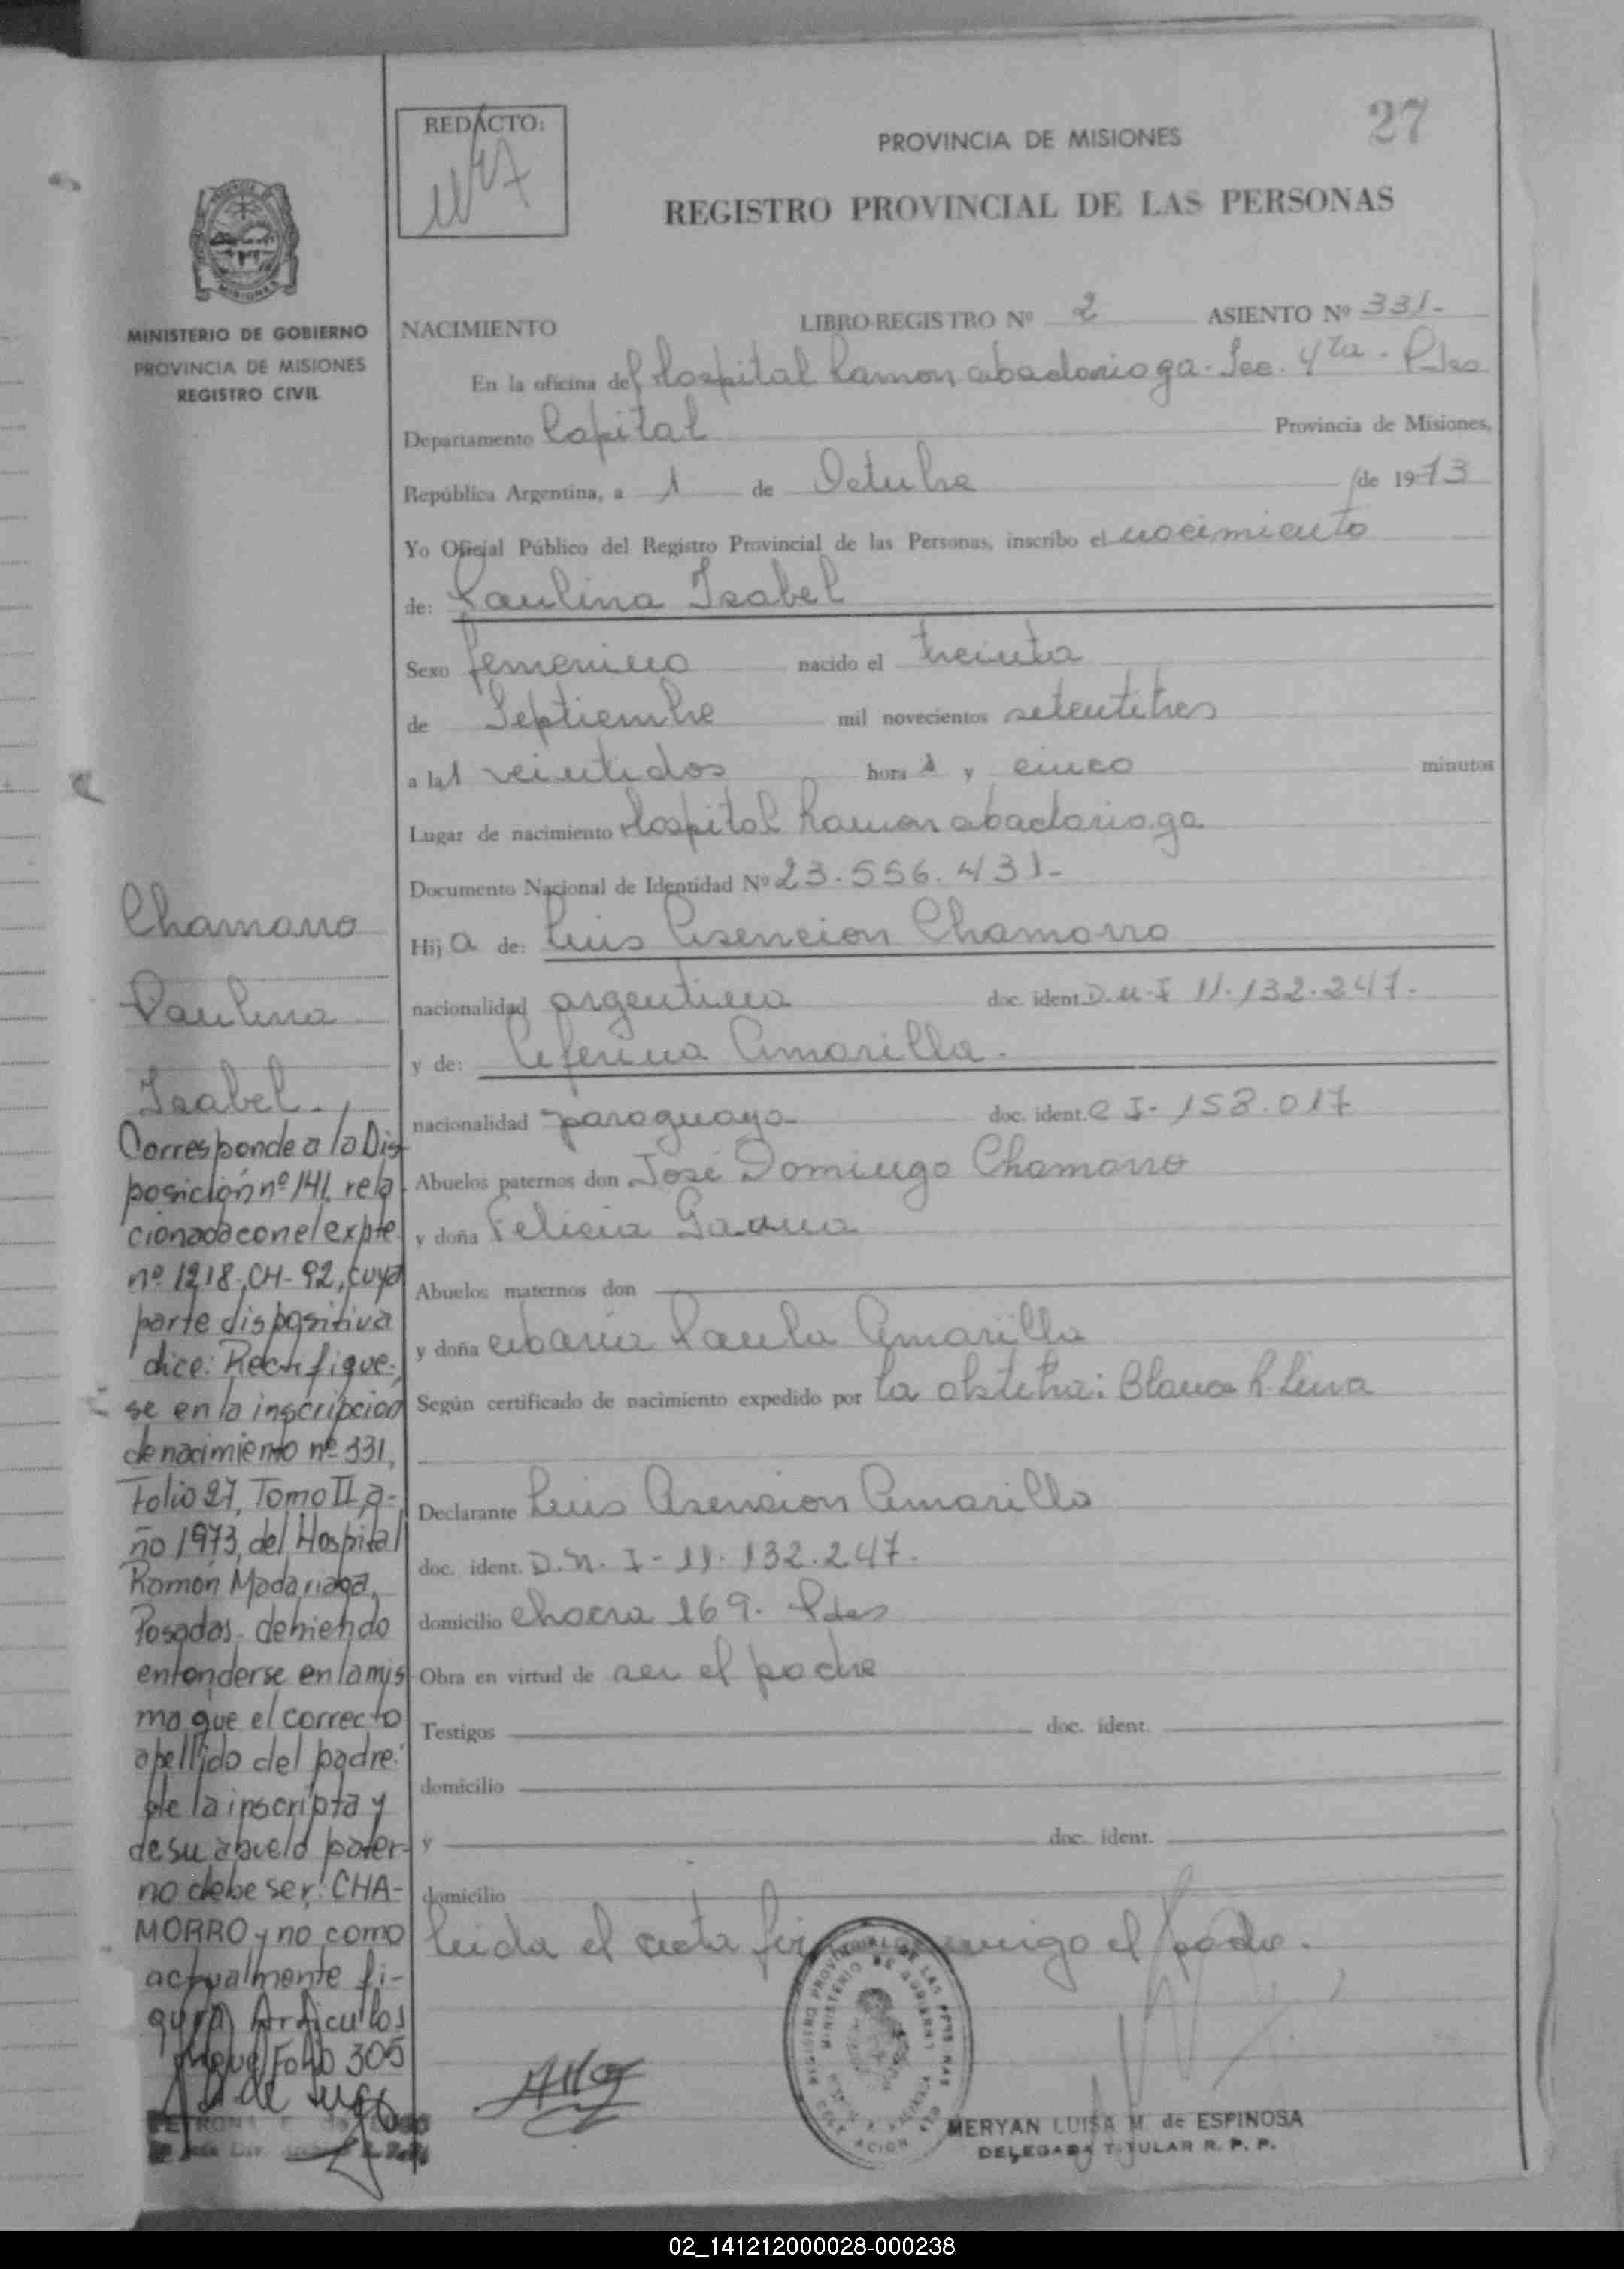 27
REDACTO:
PROVINCIA DE MISIONES
REGISTRO PROVINCIAL DE LAS PERSONAS
MISIONES
MINISTERIO DE GOBIERNO
PROVINCIA DE MISIONES
REGISTRO CIVIL
NACIMIENTO LIBRO-REGISTRO Nº 2 ASIENTO Nº 331.-
En la oficina del Hospital Ramon Madariaga. Sec. 4ta - Pdas
Departamento Capital Provincia de Misiones,
República Argentina, a 1 de Octubre de 1973
Yo Oficial Público del Registro Provincial de las Personas, inscribo el nacimiento
de: Paulina Isabel
Sexo femenino nacido el treinta
de Septiembre mil novecientos setentitres
a las veintidos horas y cinco minutos
Lugar de nacimiento Hospital Ramon Madariaga
Documento Nacional de Identidad Nº 23.556.431-
Hija de: Luis Asencion Chamorro
nacionalidad argentina doc. ident. D.N.I 11.132.247.-
y de: Ceferina Amarilla.
nacionalidad paraguaya doc. ident. C I- 158.017
Abuelos paternos don José Domingo Chamorro
y doña Felicia Gauna
Abuelos maternos don
y doña Maria Paula Amarilla
Según certificado de nacimiento expedido por La obstetra: Blanca R. Leiva
Declarante Luis Asencion Amarilla
doc. ident. D.N.I- 11.132.247.
domicilio chacra 169. Pdas
Obra en virtud de ser el padre
Testigos doc. ident.
domicilio
y doc. ident.
domicilio
Leida el acta el padre.
MERYAN LUISA M. de ESPINOSA
DELEGADA TITULAR R. P. P.
Chamorro
Paulina
Isabel.-
Corresponde a la Dis-
posición nº 141, rela-
cionada con el expte.
nº 1218-CH-92, cuya
parte dispositiva
dice: Rectifique-
se en la inscripcion
de nacimiento nº 331,
Folio 27, Tomo II, a-
ño 1973, del Hospital
Ramón Madariaga,
Posadas, debiendo
entenderse en la mis-
ma que el correcto
apellido del padre
de la inscripta y
de su abuelo pater-
no debe ser: CHA-
MORRO y no como
actualmente fi-
gura Articulos
Folio 305
02_141212000028-000238